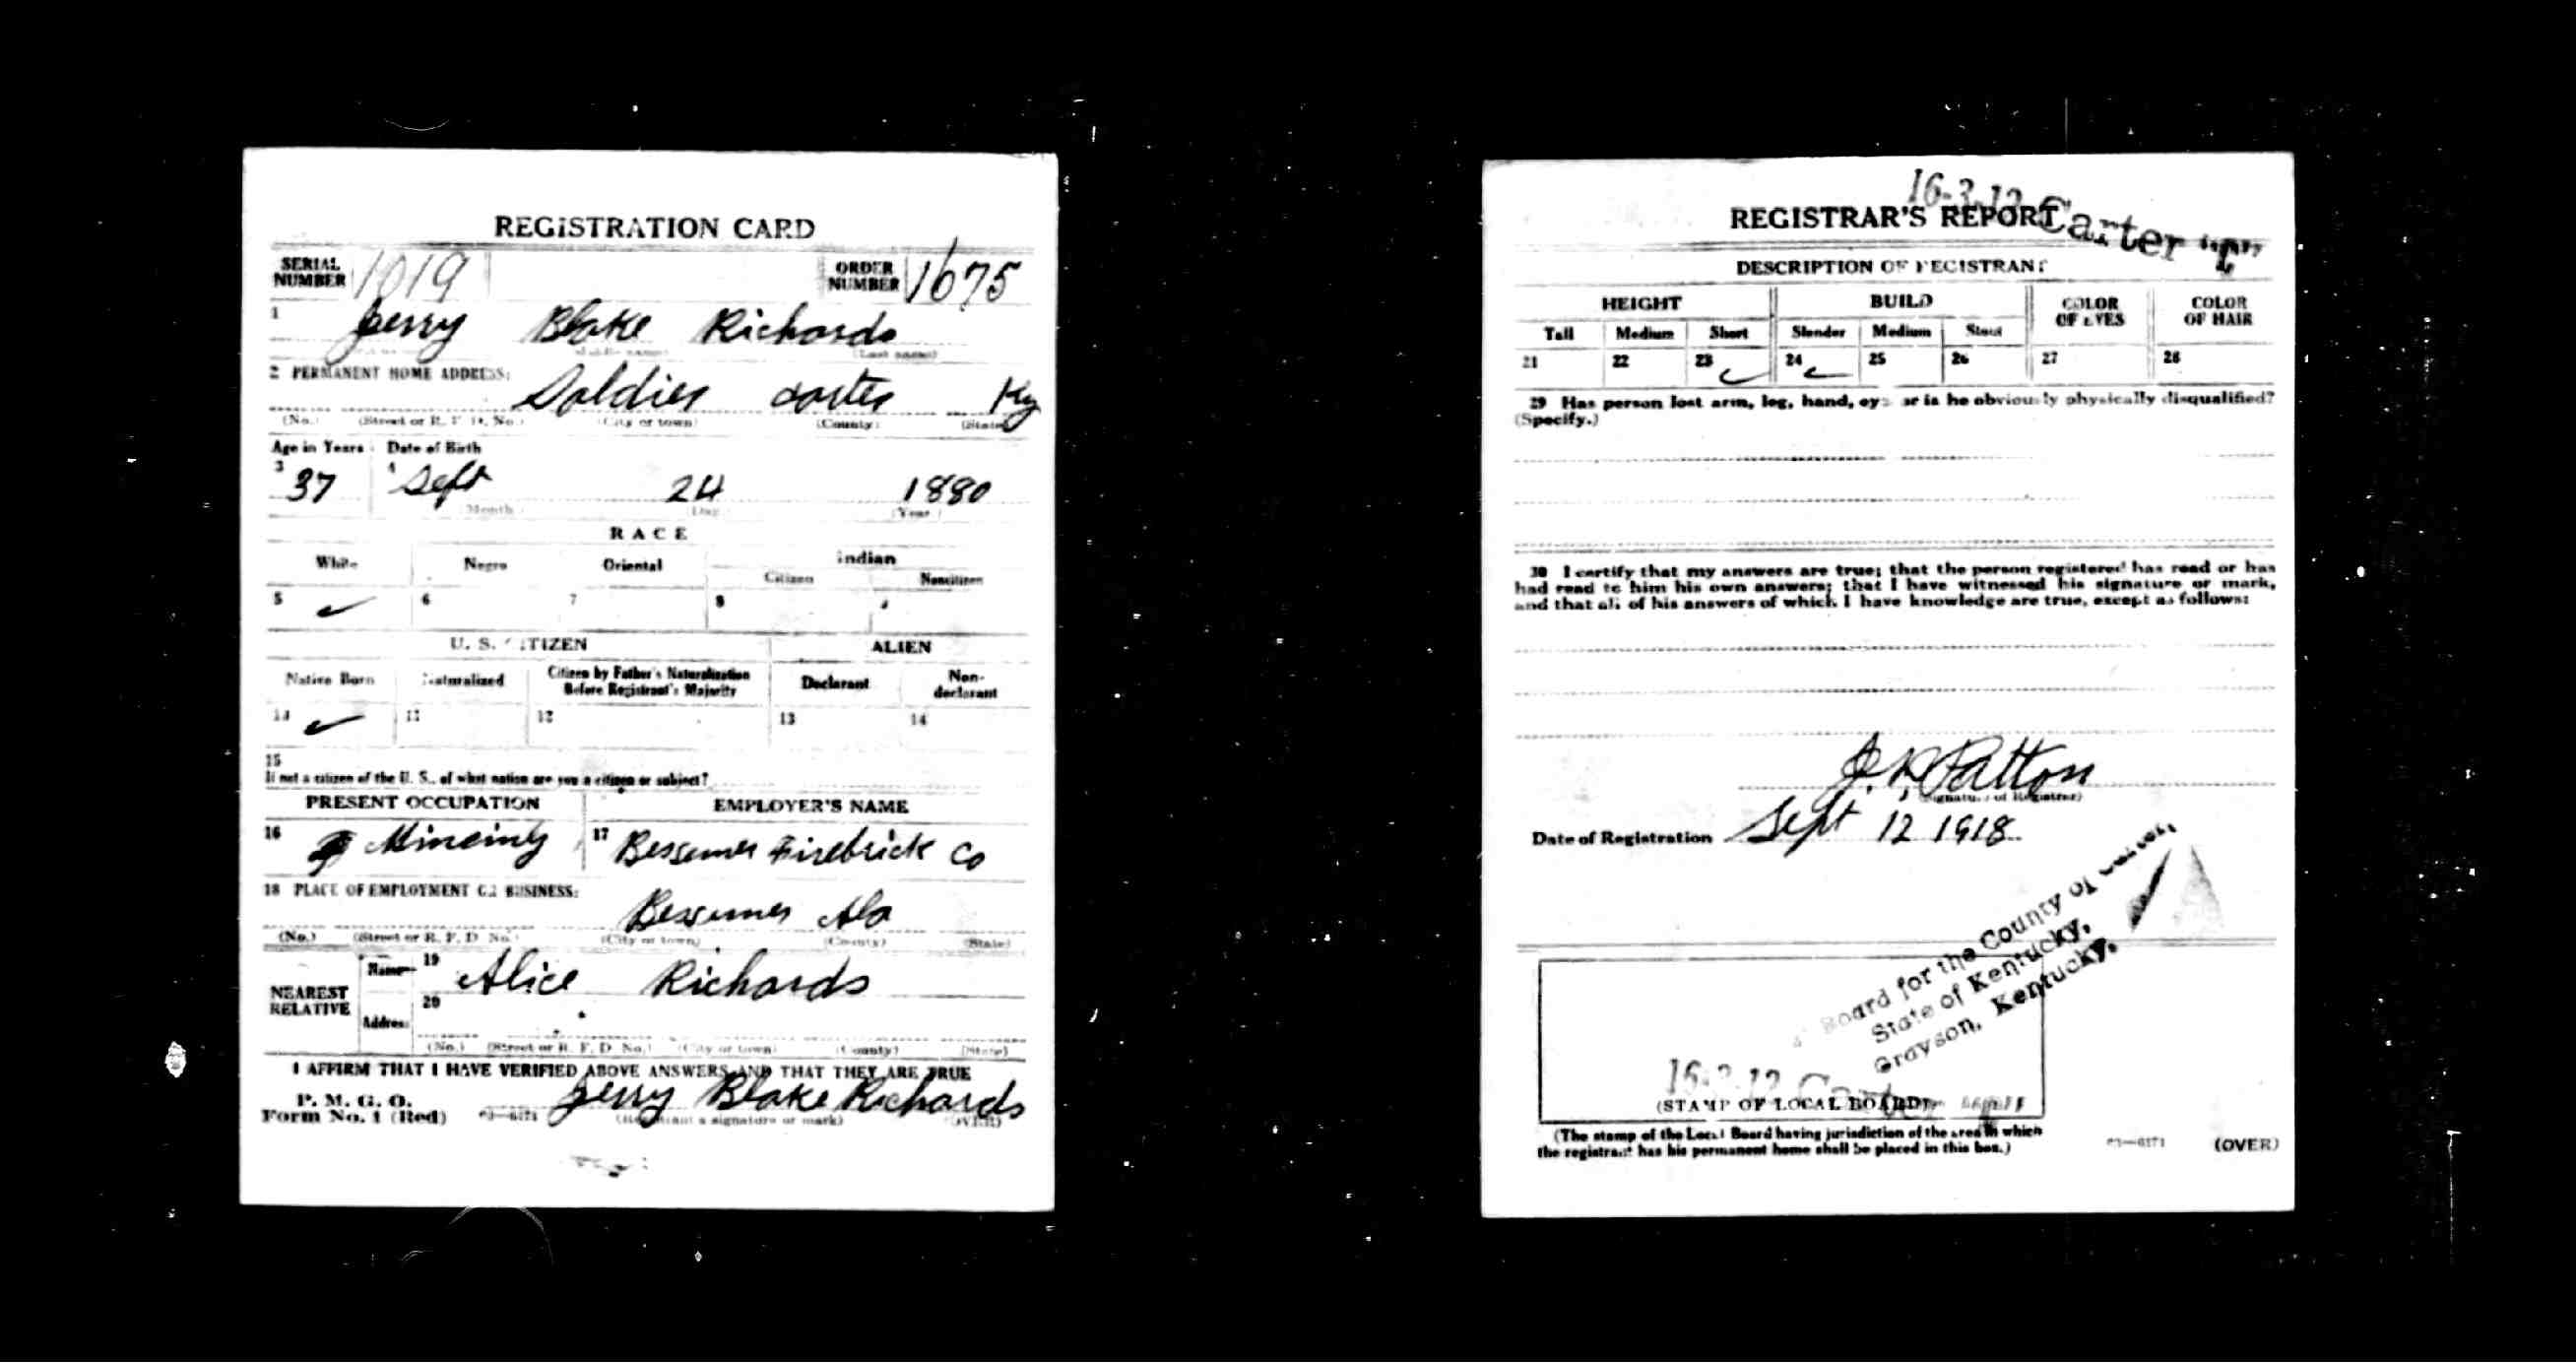 REGISTRATION CARD
SERIAL NUMBER 1019 ORDER NUMBER 1675
1 Jerry Blake Richards
(Last name)
2 PERMANENT HOME ADDRESS:
Soldier Carter Ky
(No.) (Street or R. F. D. No.) (City or town) (County) (State)
Age in Years Date of Birth
3 37 4 Sept 24 1880
(Month) (Day) (Year)
RACE
White Negro Oriental Indian
Citizen Noncitizen
5 ✓ 6 7 8 9
U. S. CITIZEN ALIEN
Native Born Naturalized Citizen by Father's Naturalization Before Registrant's Majority Declarant Non-declarant
10 ✓ 11 12 13 14
15
If not a citizen of the U. S., of what nation are you a citizen or subject?
PRESENT OCCUPATION EMPLOYER'S NAME
16 Mineing 17 Bessemer Firebrick Co
18 PLACE OF EMPLOYMENT OR BUSINESS:
Bessemer Ala
(No.) (Street or R. F. D. No.) (City or town) (County) (State)
NEAREST RELATIVE
Name 19 Alice Richards
Address 20
(No.) (Street or R. F. D. No.) (City or town) (County) (State)
I AFFIRM THAT I HAVE VERIFIED ABOVE ANSWERS AND THAT THEY ARE TRUE
P. M. G. O.
Form No. 1 (Red) 03—6171 Jerry Blake Richards
(Registrant's signature or mark) (OVER)
16-3-12 Carter "C"
REGISTRAR'S REPORT
DESCRIPTION OF REGISTRANT
HEIGHT BUILD COLOR OF EYES COLOR OF HAIR
Tall Medium Short Slender Medium Stout
21 22 23 ✓ 24 ✓ 25 26 27 28
29 Has person lost arm, leg, hand, eye, or is he obviously physically disqualified?
(Specify.)
30 I certify that my answers are true; that the person registered has read or has
had read to him his own answers; that I have witnessed his signature or mark,
and that all of his answers of which I have knowledge are true, except as follows:
Patton
(Signature of Registrar)
Date of Registration Sept 12 1918
Board for the County of Carter,
State of Kentucky,
Grayson, Kentucky,
16-3-12 Carter
(STAMP OF LOCAL BOARD)
(The stamp of the Local Board having jurisdiction of the area in which
the registrant has his permanent home shall be placed in this box.)
03—6171 (OVER)